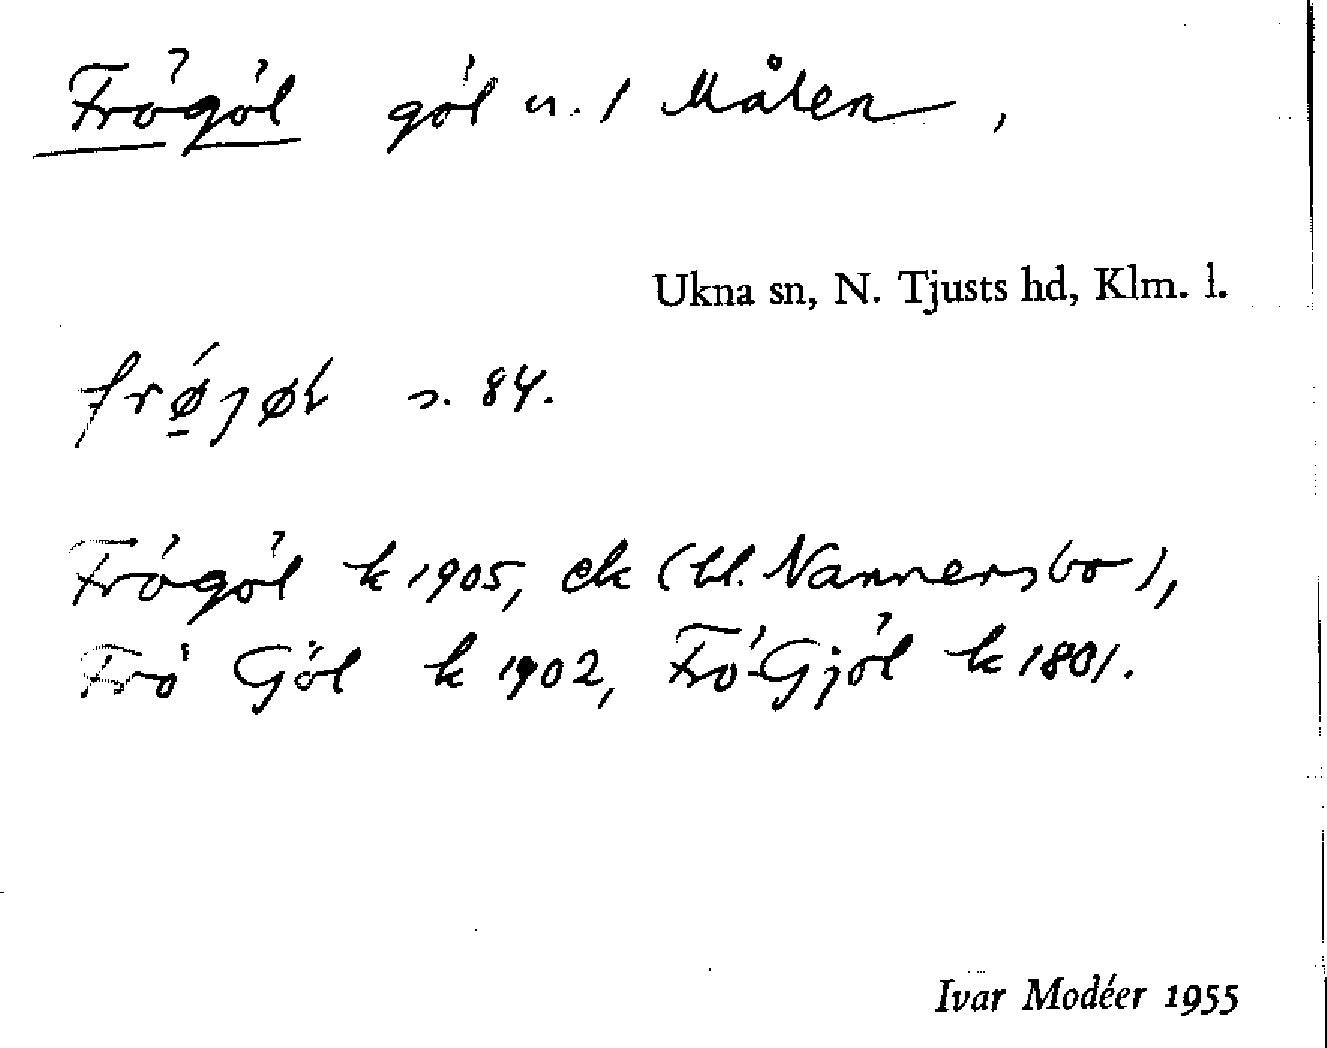 Frögöl göl u. / Målen,
Ukna sn, N. Tjusts hd, Klm. l.
frǿ̱jøl s. 84.
Frögöl k 1905, ek (bl. Nannersbo),
Frö Göl k 1902, Frö-Gjöl k 1801.
Ivar Modéer 1955